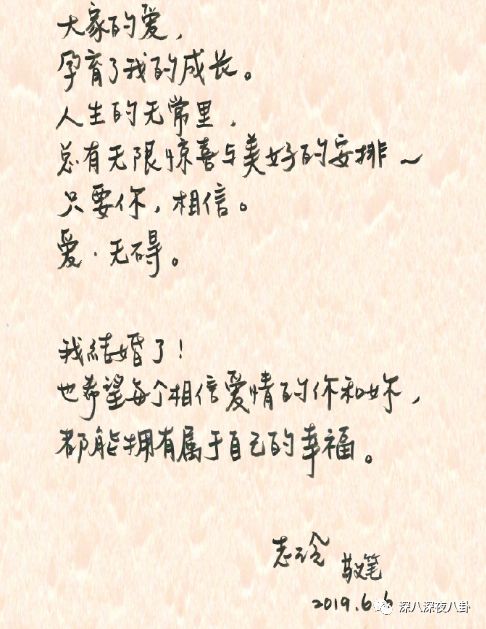 大家的爱，
孕育了我的成长。
人生的无常里，
总有无限惊喜与美好的安排~
只要你，相信。
爱·无碍。
我结婚了！
也希望每个相信爱情的你和妳，
都能拥有属于自己的幸福。
志玲 敬笔
2019.6.6
深八深夜八卦